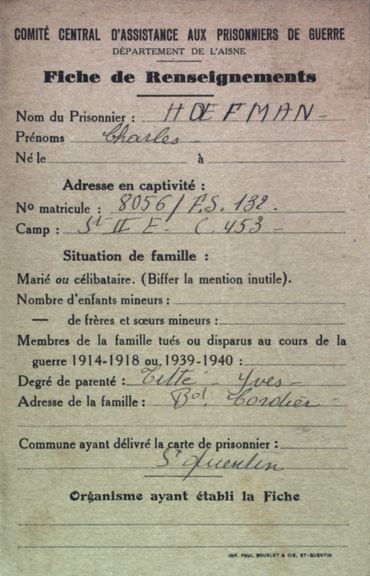 COMITÉ CENTRAL D'ASSISTANCE AUX PRISONNIERS DE GUERRE
DÉPARTEMENT DE L'AISNE
Fiche de Renseignements
Nom du Prisonnier : HOEFMAN
Prénoms Charles
Né le à
Adresse en captivité :
No matricule : 8056 / F.S. 132
Camp : St II E C. 453
Situation de famille :
Marié ou célibataire. (Biffer la mention inutile).
Nombre d'enfants mineurs :
— de frères et sœurs mineurs :
Membres de la famille tués ou disparus au cours de la
guerre 1914-1918 ou 1939-1940 :
Degré de parenté : Yves
Adresse de la famille : Bd. Cordier
Commune ayant délivré la carte de prisonnier :
St Quentin
Organisme ayant établi la Fiche
IMP. PAUL BOURLET & CIE, ST-QUENTIN